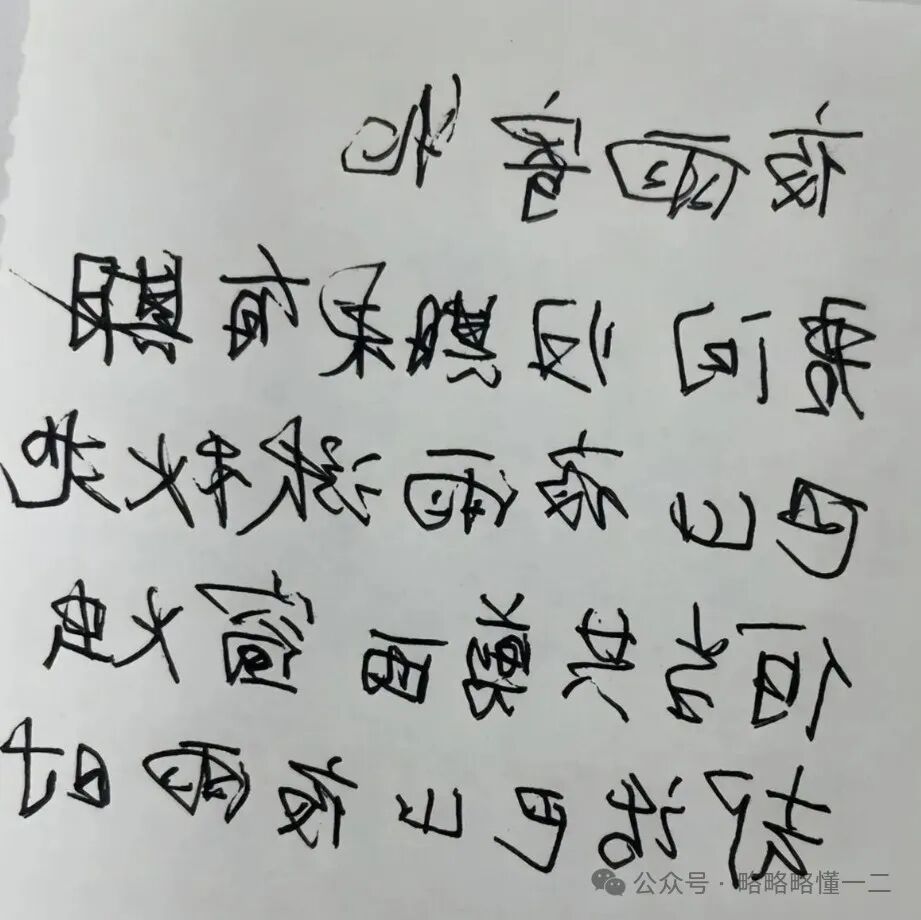 夜雨寄北
君问归期未有期
巴山夜雨涨秋池
何当共剪西窗烛
却话巴山夜雨时
公众号·略略略懂一二